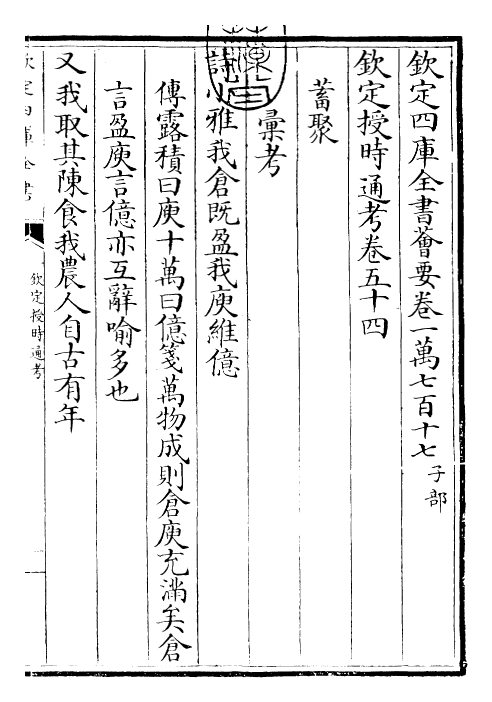 欽定四庫全書薈要卷一萬七百十七 子部
欽定授時通考卷五十四
蓄聚
彙考
詩小雅我倉既盈我庾維億
傳露積曰庾十萬曰億箋萬物成則倉庾充滿矣倉
言盈庾言億亦互辭喻多也
又我取其陳食我農人自古有年
欽定四庫全書
欽定授時通考